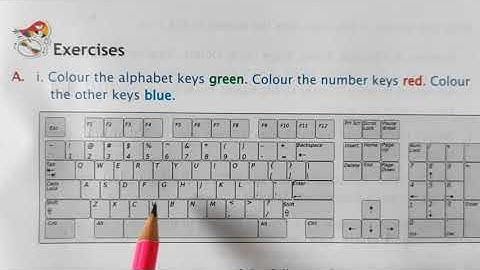 Exercises
A. i. Colour the alphabet keys green. Colour the number keys red. Colour
the other keys blue.
Esc F1 F2 F3 F4 F5 F6 F7 F8 F9 F10 F11 F12 Prt Scr Scroll Lock Pause Break
~ ! 1 @ 2 # 3 $ 4 % 5 ^ 6 & 7 * 8 ( 9 ) 0 Backspace Insert Home Page Up
Tab Q W E R T Y U I O P Delete End Page Down
Caps Lock A S D F G H J K L Enter
Shift Z X C B N M < > ? / Shift
Ctrl Alt Alt Ctrl